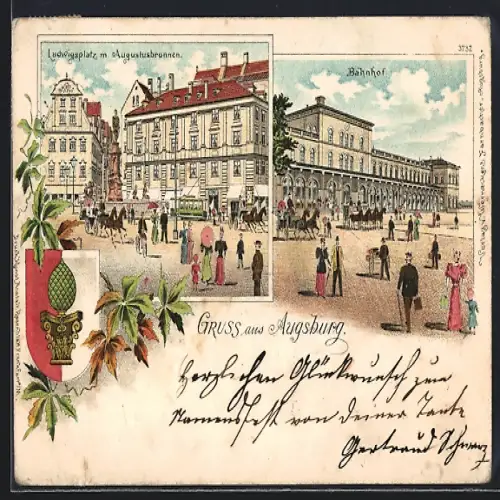 Ludwigsplatz m. Augustusbrunnen.
3752
Bahnhof
GRUSS aus Augsburg.
Herzlichen Glückwunsch zum
Namensfest von deiner Tante
Gertraud Schwarz